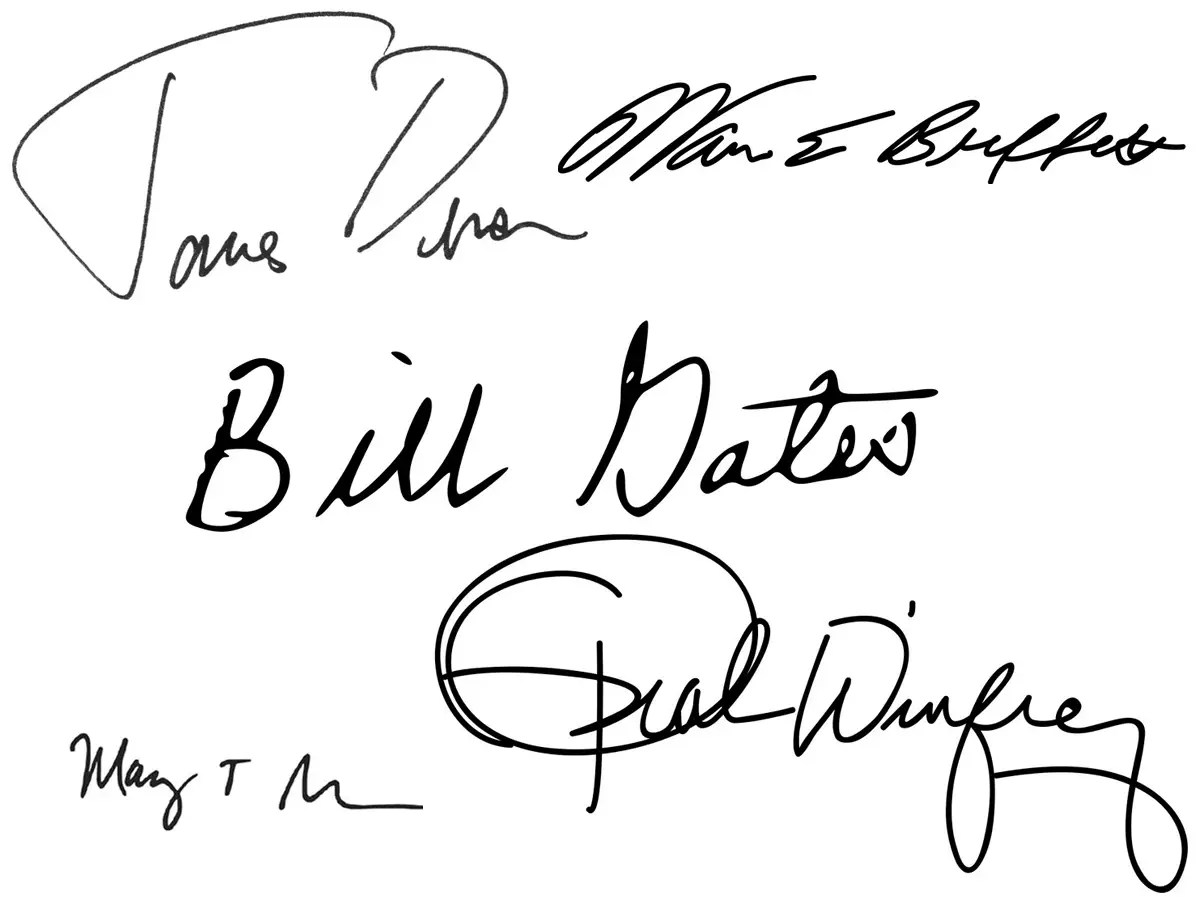 James Dinan
Warren E Buffett
Bill Gates
Oprah Winfrey
Mary T